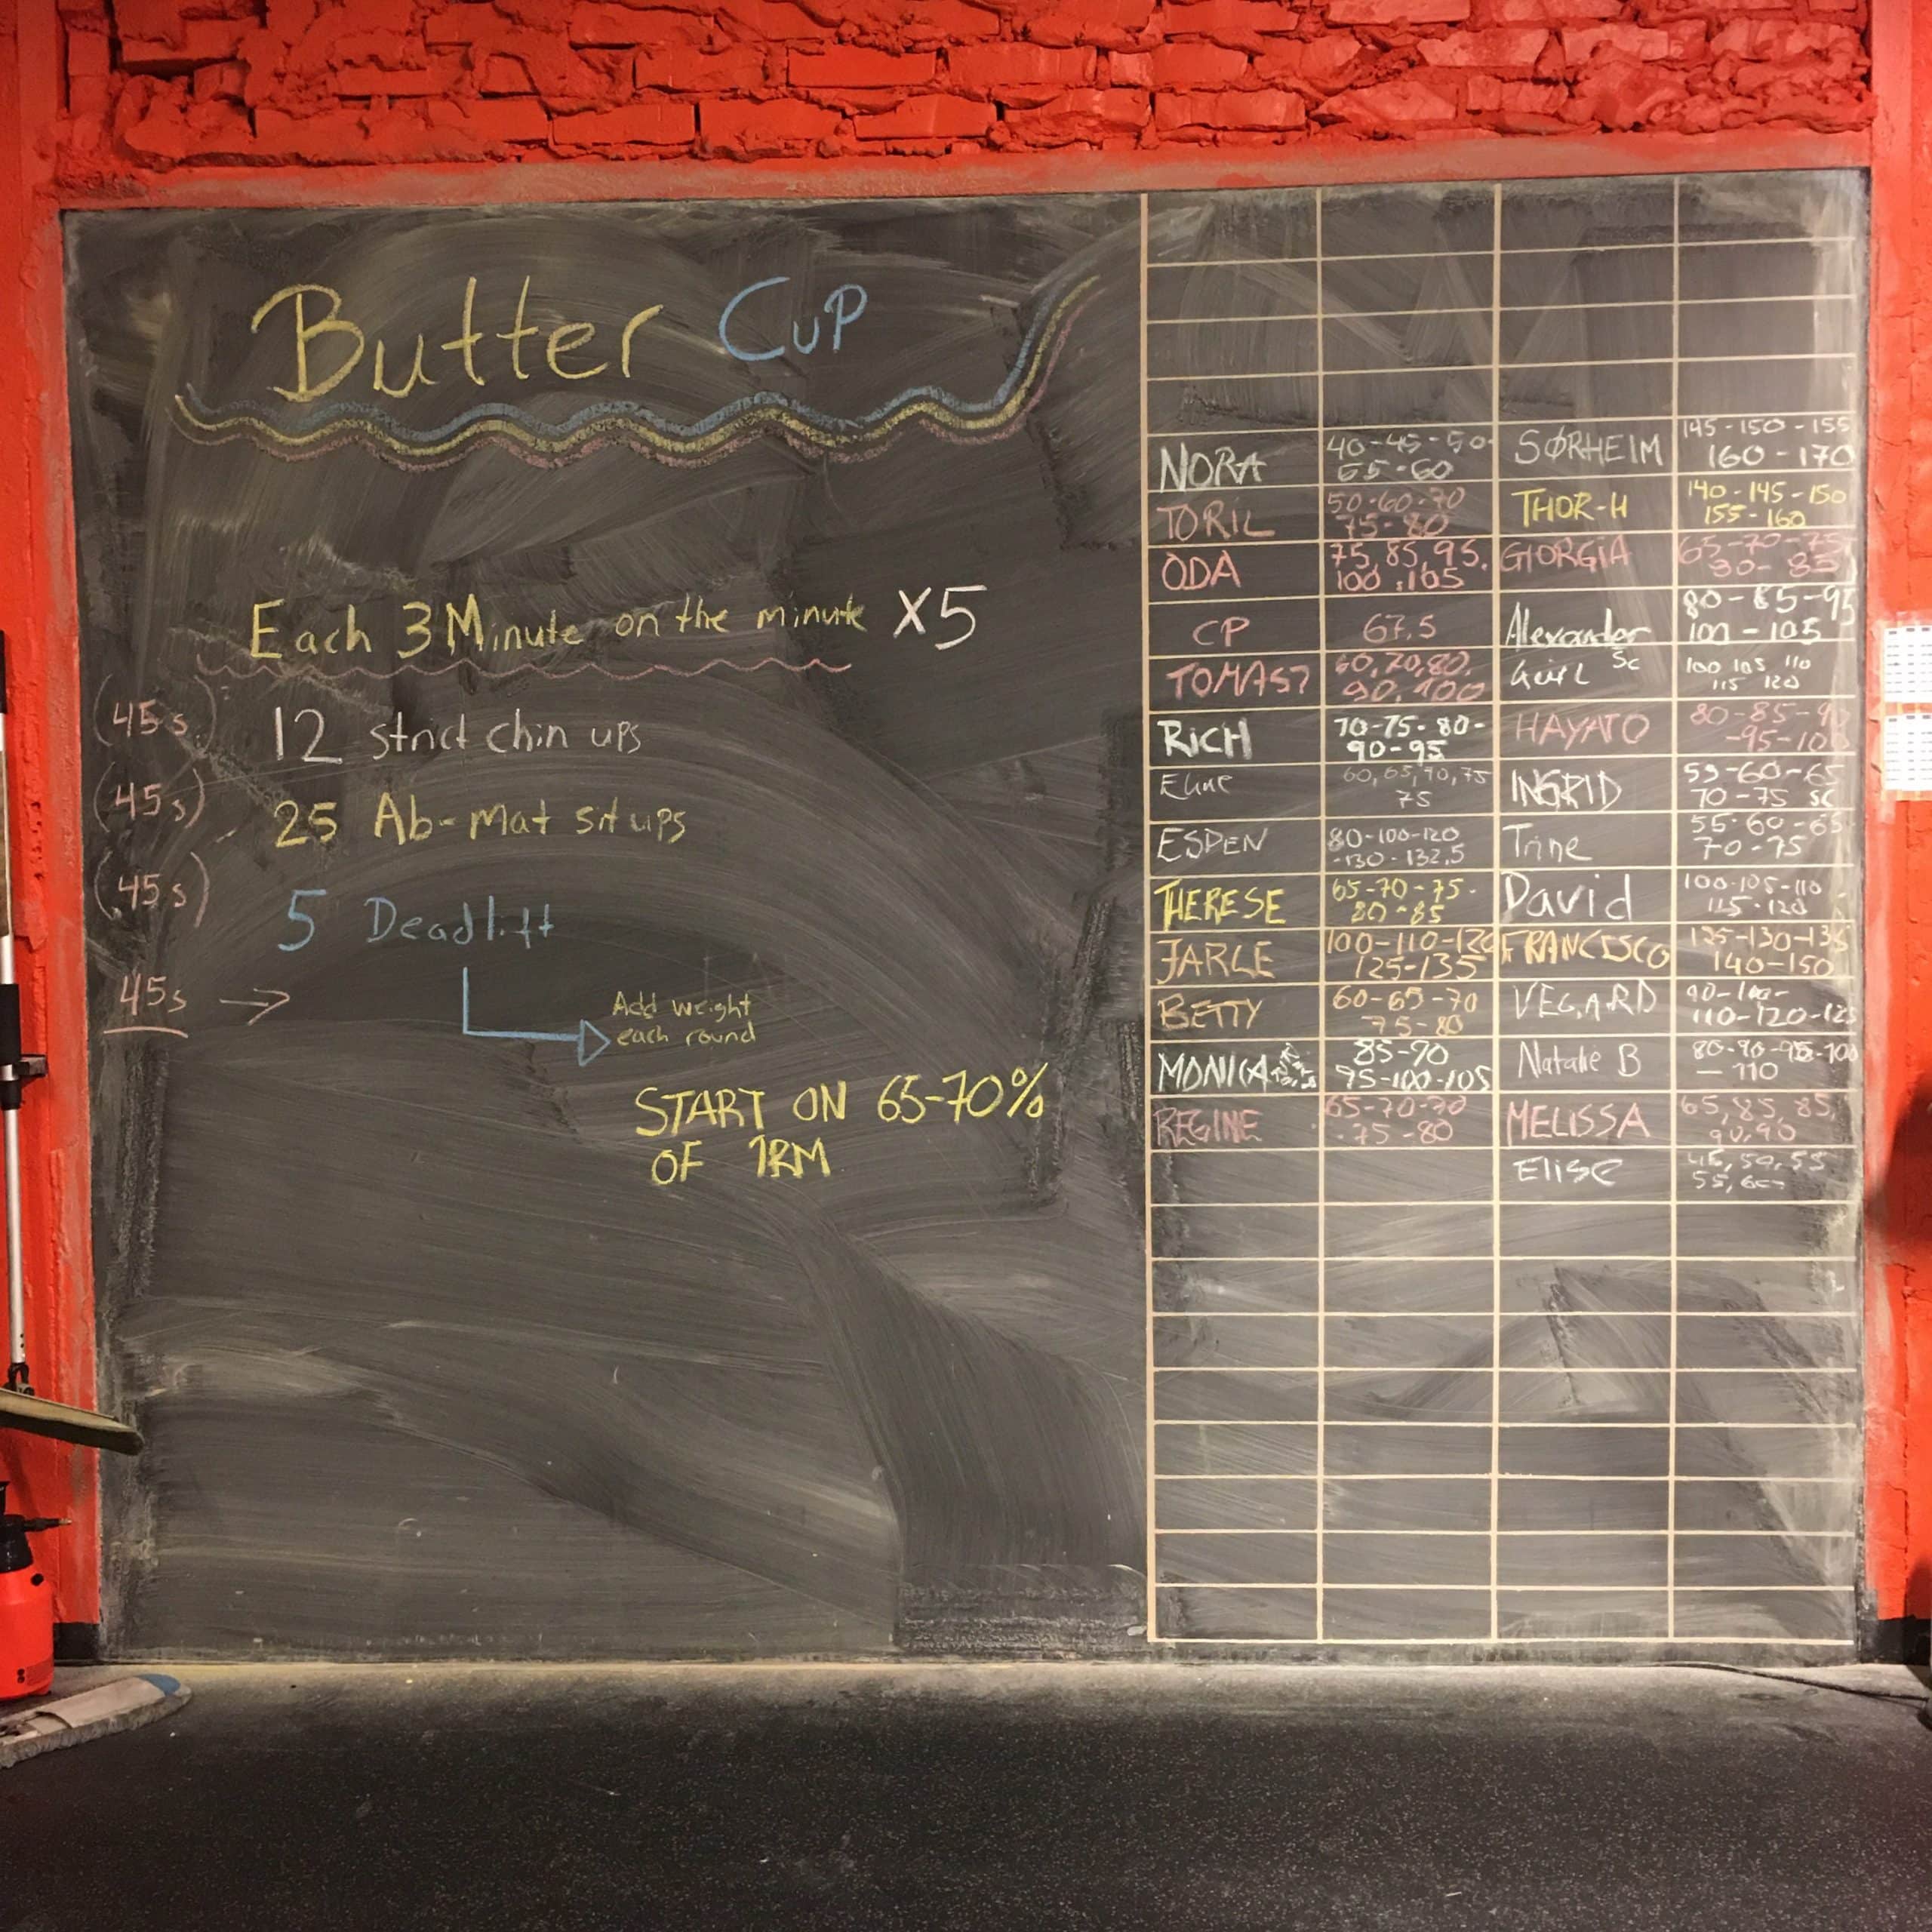 Butter Cup
Each 3 Minute on the minute X5
(45s) 12 strict chin ups
(45s) 25 Ab-mat sit ups
(45s) 5 Deadlift
45s →
Add weight
each round
START ON 65-70%
OF 1RM
NORA
40-45-50-
55-60
SØRHEIM
145-150-155
160-170
TORIL
50-60-70
75-80
THOR-H
140-145-150
155-160
ODA
75, 85, 95.
100.105
GIORGIA
65-70-75
80-85
CP
67.5
Alexander
80-85-95
100-105
TOMASZ
60,70,80,
90,100
Sc
100 105 110
115 120
RICH
70-75-80-
90-95
HAYATO
80-85-90
-95-100
Eline
60, 65, 70, 75
75
INGRID
55-60-65
70-75 sc
ESPEN
80-100-120
-130-132.5
Trine
55-60-65
70-75
THERESE
65-70-75-
80-85
David
100-105-110
115-120
JARLE
100-110-120
125-135
FRANCISCO
125-130-135
140-150
BETTY
60-65-70
75-80
VEGARD
90-100-
110-120-125
MONICA
85-90
95-100-105
Natalie B
80-90-95-100
-110
REGINE
65-70-70
-75-80
MELISSA
65, 85, 85,
90,90
Elise
45, 50, 55
55, 60